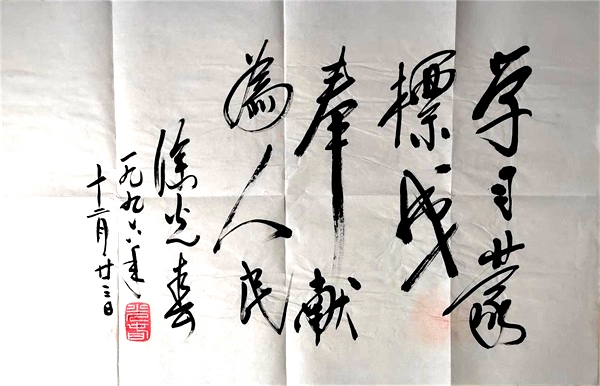 学习蒙
標
奉献
為人民
徐光春
一九九六年
十二月廿三日